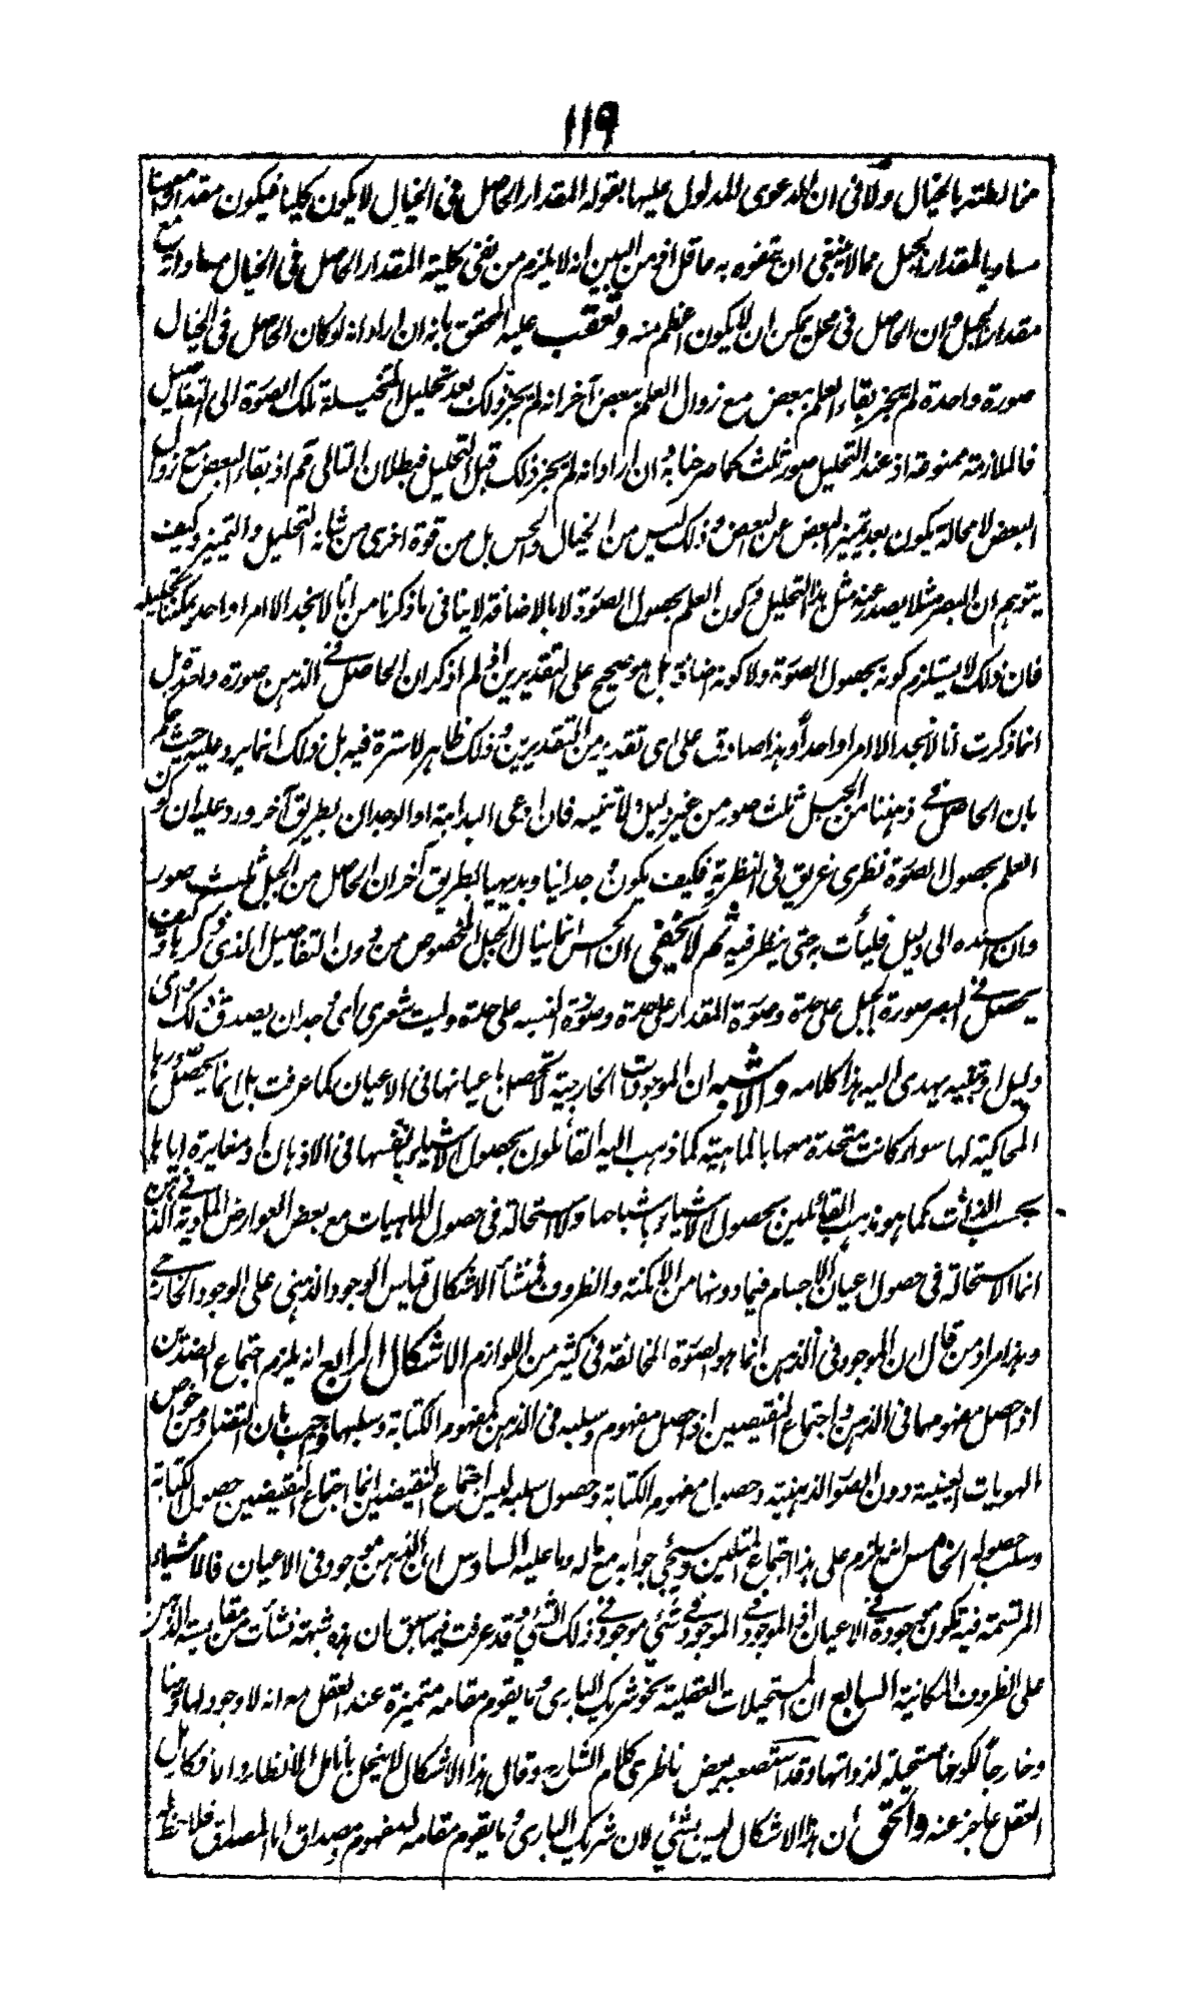 ١١٩
مخالطته بالخيال ولا في ان الدعوى المدلول عليها بقوله المقدار الحاصل في الخيال لا يكون كليا فيكون مقدارا معينا
مساويا لمقدار الجبل مما لا ينبغي ان يتفوه به عاقل اذ من البين انه لا يلزم من نفي كلية المقدار الحاصل في الخيال مساواته مع
مقدار الجبل وان الحاصل في محل يمكن ان لا يكون اعظم منه وتعقب عليه المحقق بانه ان اراد انه لو كان الحاصل في الخيال
صورة واحدة لم يجز بقاء العلم ببعض مع زوال العلم ببعض آخر انه لم يجز ذلك بعد تحليل المتخيلة تلك الصورة الى التفاصيل
فالملازمة ممنوعة اذ عند التحليل صور ثلث كما صرحنا به وان اراد انه لم يجز ذلك قبل التحليل فبطلان التالي ثم اذ بقاء البعض مع زوال
البعض لا محالة يكون بعد تميز البعض عن البعض وذلك ليس من الخيال والحس بل من قوة اخرى من شانه التحليل والتميز وكيف
يتوهم ان البصر مثلا يصدر عنه مثل هذا التحليل وكون العلم بحصول الصورة لا بالاضافة لا ينافي ما ذكرنا من انا لا نجد الا امرا واحدا يمكننا تحليله
فان ذلك لا يستلزم كونه بحصول الصورة ولا كونه اضافة بل هو صحيح على التقديرين اذ لم اذكر ان الحاصل في الذهن صورة واحدة بل
انما ذكرت انا لا نجد الا امرا واحدا وهذا صادق على اى تقدير من التقديرين وذلك ظاهر لا سترة فيه بل ذلك انما يرد عليه حيث حكم
بان الحاصل في ذهننا من الجبل ثلث صور من غير دليل ولا تنبيه فان ادعى البداهة او الوجدان بطريق آخر ورد عليه ان كون
العلم بحصول الصورة نظري غريق في النظرية فكيف يكون وجدانيا وبديهيا بطريق آخر ان الحاصل من الجبل ثلث صور
وان اسنده الى دليل فليأت به حتى ينظر فيه ثم لا يخفى ان الحس انما ينال الجبل المخصوص من دون التفاصيل الذي ذكرها وكيف
يحصل في البصر صورة الجبل على حدة وصورة المقدار على حدة وصورة النفسه على حدة وليت شعري اى وجدان يصدق ذلك واى
دليل او تنبيه يهدي اليه هذا كلامه والاشبه ان الموجودات الخارجية لا تحصل باعيانها في الاعيان كما عرفت بل انما يحصل صورها
المحاكية لها سواء كانت متحدة معها بالماهية كما ذهب اليه القائلون بحصول الاشياء بانفسها في الاذهان او مغايرة اياها
بحسب الذات كما هو مذهب القائلين بحصول الاشياء باشباحها ولا استحالة في حصول الماهيات مع بعض العوارض المادية في الذهن
انما الاستحالة في حصول اعيان الاجسام فيما دونها من الامكنة والظروف فنشأ الاشكال قياس الوجود الذهني على الوجود الخارجي
وهذا مراد من قال ان الموجود في الذهن انما هو الصورة المخالفة في كثير من اللوازم الاشكال الرابع انه يلزم اجتماع الضدين
اذ احصل مفهومهما في الذهن واجتماع النقيضين اذ احصل مفهوم وسلبه في الذهن كمفهوم الكتابة وسلبها واجيب بان التضاد من خواص
الهويات العينية دون الصور الذهنية وحصول مفهوم الكتابة وحصول سلبه ليس اجتماع النقيضين انما اجتماع النقيضين حصول الكتابة
وسلب حصوله الخامس انه يلزم على هذا اجتماع المثلين وسيجيء جوابه مع ما له وما عليه السادس ان الذهن موجود في الاعيان فالاشياء
المرتسمة فيه تكون موجودة في الاعيان اذ الموجود في الموجود في شيء موجود في ذلك الشيء وقد عرفت فيما سبق ان هذه شبهة نشأت من مقايسة الذهن
على الظروف المكانية السابع ان المستحيلات العقلية نحو شريك الباري وما يقوم مقامه متميزة عند العقل مع انه لا وجود لها ذهنا
وخارجا لكونها مستحيلة لذواتها وقد استصعبه بعض ناظري كلام الشارح وقال هذا الاشكال لا ينحل بانامل الانظار واما فكاك بل
العقل عاجز عنه والحق ان هذا الاشكال ليس بشيء لان شريك الباري وما يقوم مقامه له مفهوم ومصداق اما المصداق فلا حظ له